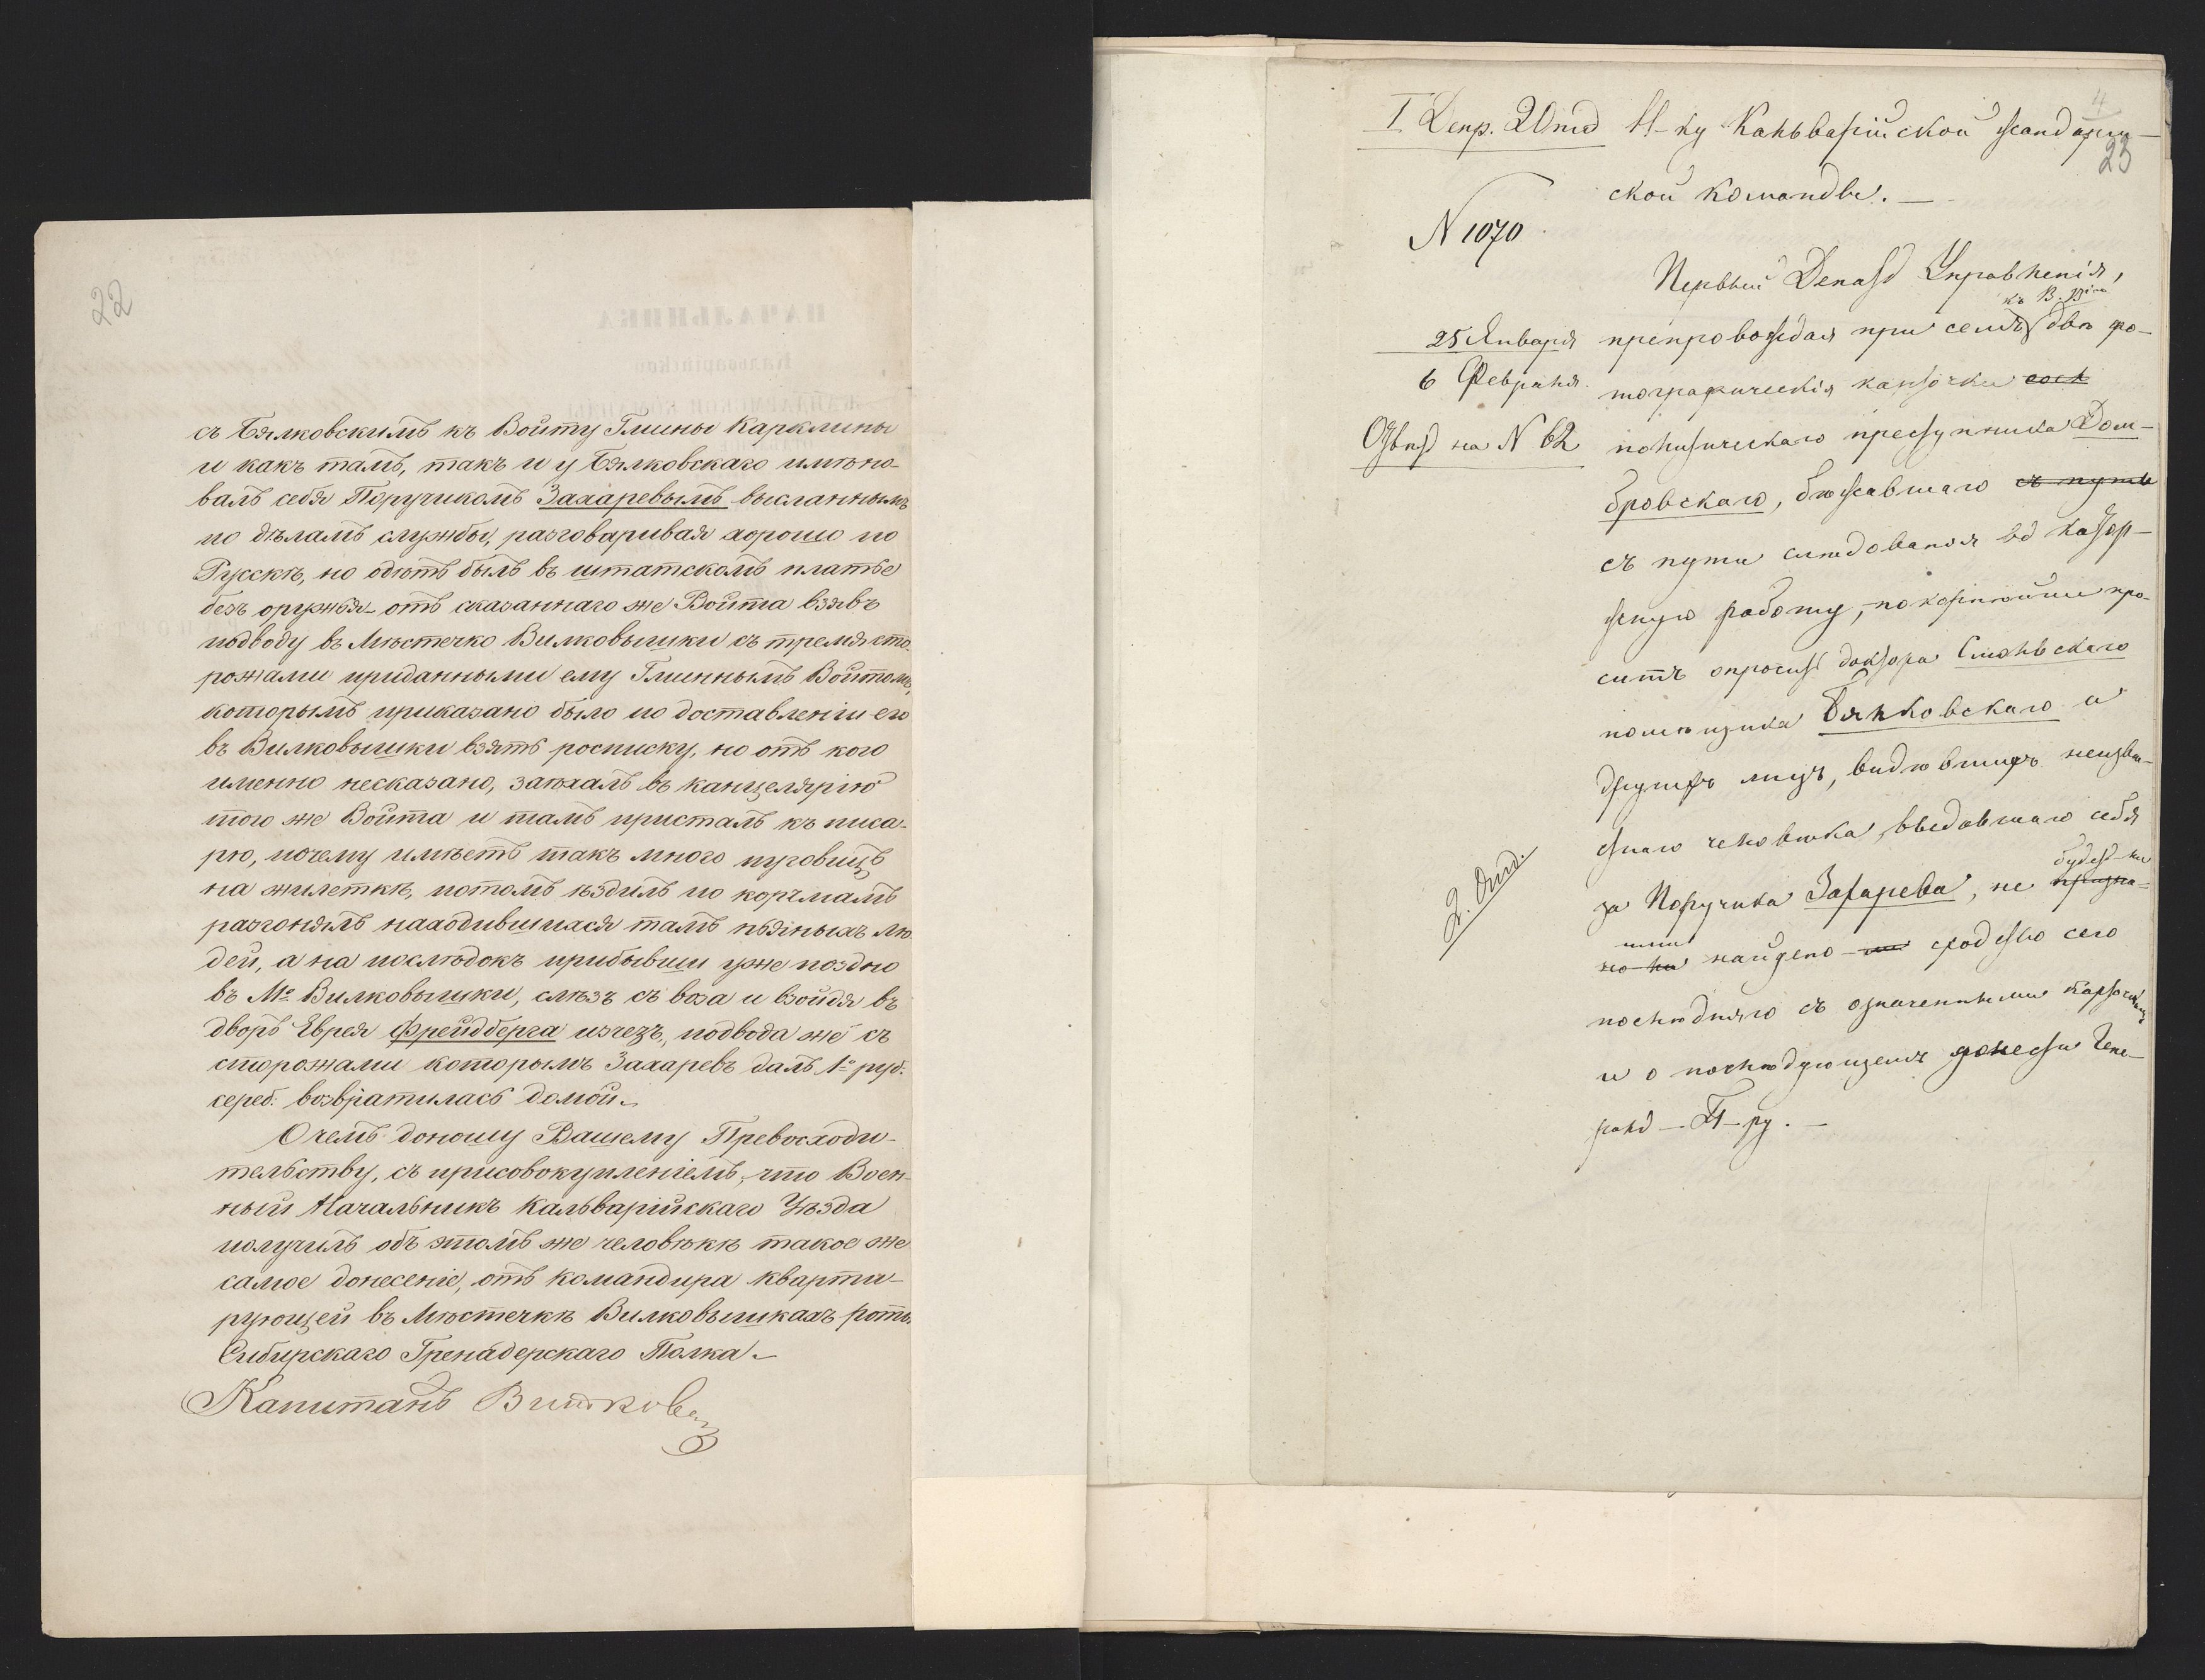 22
съ Бялковскимъ къ Войту Гмины Карклины
и какъ тамъ, такъ и у Бялковскаго имѣно-
валъ себя Поручикомъ Захаревымъ высланнымъ
по дѣламъ службы, разговаривая хорошо по
Русскѣ, но одѣтъ былъ въ штатскомъ платье
безъ оружья - отъ сказаннаго же Войта взявъ
подводу въ Мѣстечко Вилковышки съ тремя сто-
рожами приданными ему Гминнымъ Войтомъ,
которымъ приказано было по доставленіи его
въ Вилковышки взять росписку, но отъ кого
именно несказано, заѣхалъ въ канцелярію
того же Войта и тамъ присталъ къ писа-
рю, почему имѣетъ такъ много пуговицъ
на жилеткѣ, потомъ ѣздилъ по корчмамъ
разгонялъ находившихся тамъ пьяныхъ лю-
дей, а на послѣдокъ прибывши уже поздно
въ Мо Вилковышки, слѣзъ съ воза и взойдя въ
дворъ Еврея Фрейдберга изчезъ, подвода же съ
сторожами которымъ Захаревъ далъ 1о руб.
сереб. возвратилась домой.
О чемъ доношу Вашему Превосходи-
тельству, съ присовокупленіемъ, что Воен-
ный Начальникъ Кальварійскаго Уѣзда
получилъ объ этомъ же человѣкѣ такое же
самое донесеніе, отъ командира кварти-
рующей въ Мѣстечкѣ Вилковышкахъ роты
Сибирскаго Гренадерскаго Полка.
Капитанъ
4
23
I Депр. 2 Отд Н-ку Кальварійской жандарм-
ской командѣ. —
N 1070
Первый Депар Управленія,
къ В. Віги
25 Января препровождая при семъ двѣ фо-
6 Февраля тографическія карточки
Отвѣт на N 62 политическаго преступника Дом-
бровскаго, бѣжавшаго съ пути
съ пути слѣдованія въ катор-
жную работу, покорнѣйше про-
ситъ опросить доктора
помѣщика Бялковскаго и
другихъ лицъ, видѣвшихъ неизвѣ-
стнаго человѣка, выдавшаго себя
будетъ-ли
за Поручика Захарева, не призна-
ими
найдено сходство сего
послѣдняго съ означенными карточками
и о послѣдующемъ донести Гене-
ралъ-П-ру. —
2. Отд.